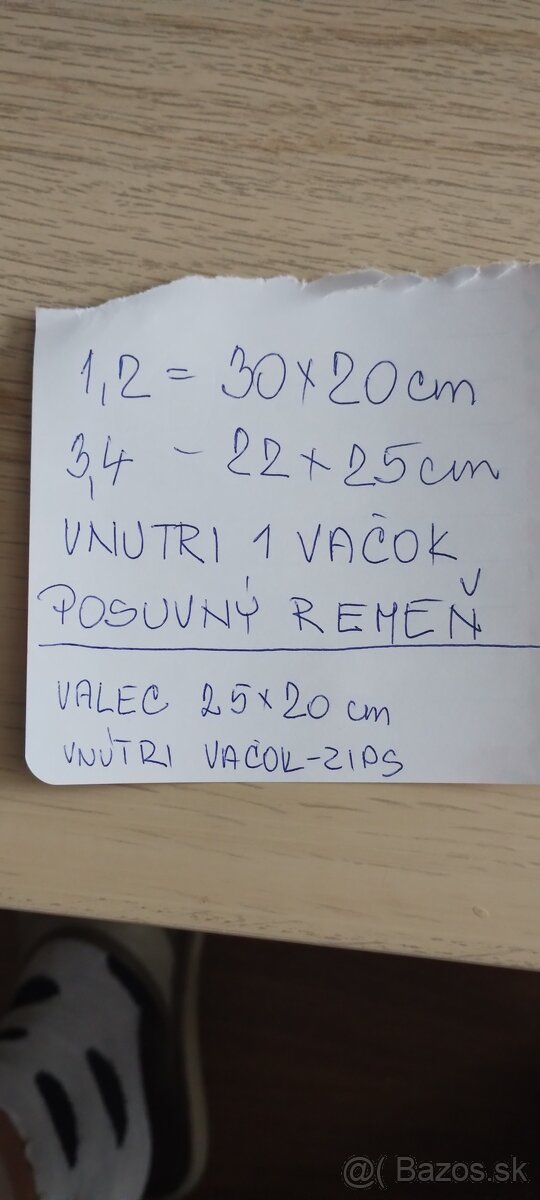 1,2 = 30x20 cm
3,4 - 22x25 cm
VNUTRI 1 VAČOK
POSUVNÝ REMEŇ
VALEC 25x20 cm
VNÚTRI VAČOK-ZIPS
@( Bazos.sk